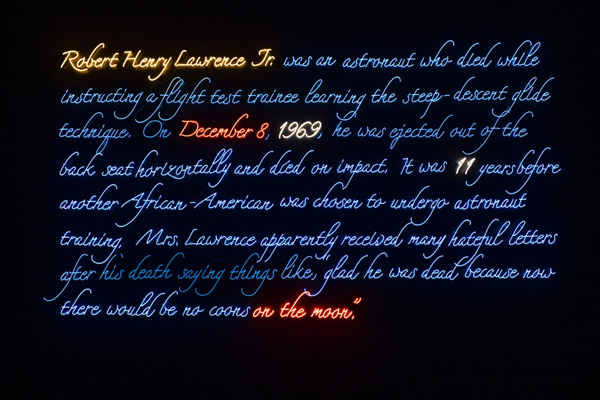 Robert Henry Lawrence Jr. was an astronaut who died while
instructing a flight test trainee learning the steep-descent glide
technique. On December 8, 1969, he was ejected out of the
back seat horizontally and died on impact. It was 11 years before
another African-American was chosen to undergo astronaut
training. Mrs. Lawrence apparently received many hateful letters
after his death saying things like, 'glad he was dead because now
there would be no coons on the moon."